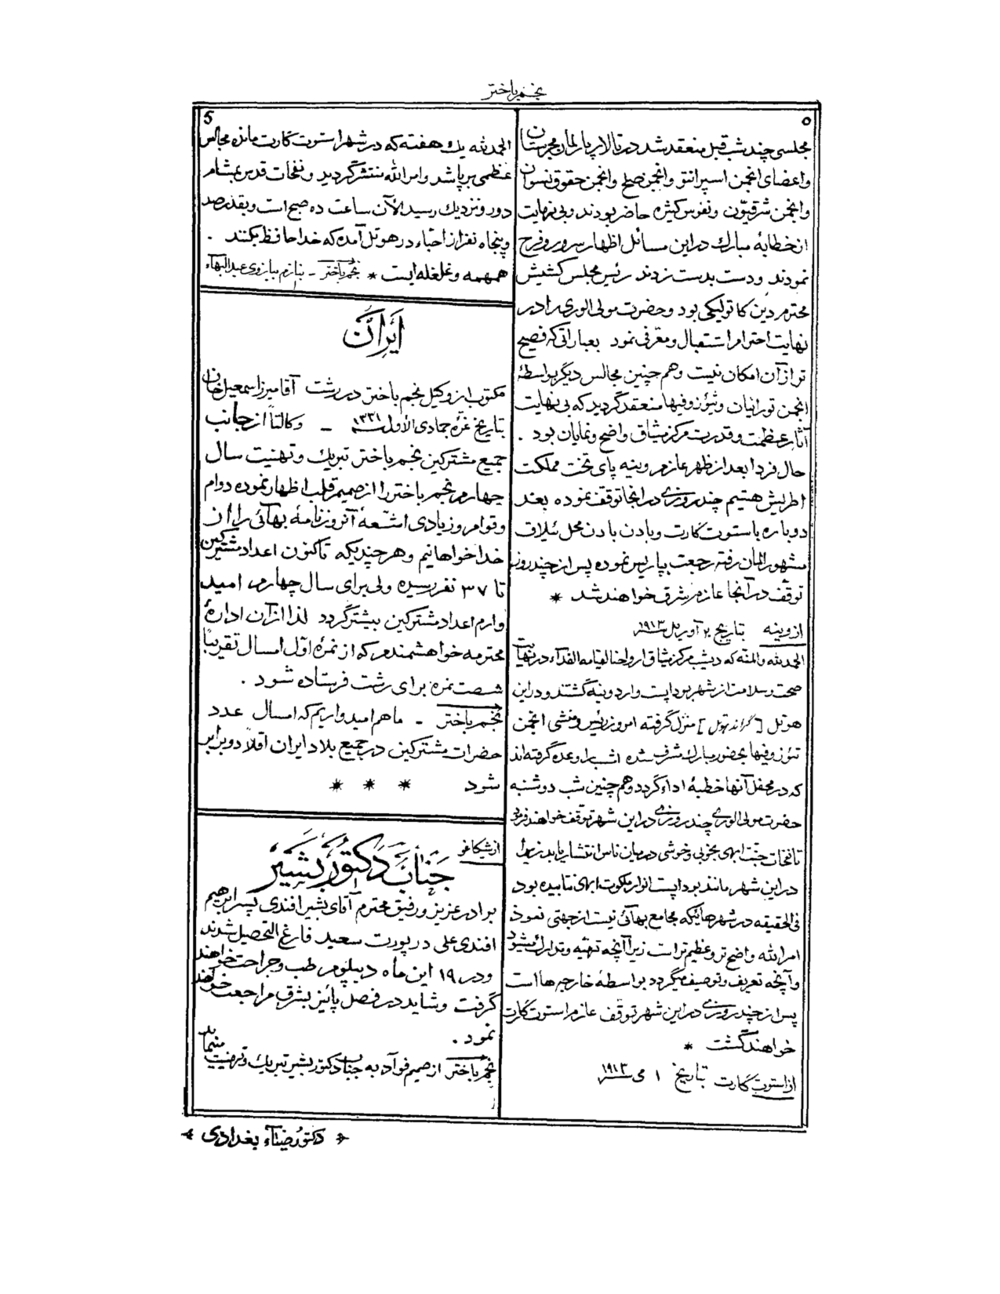 نجم باختر
۵
مجلسی چند شب قبل منعقد شد در تالار پارلمان مجرستان
و اعضای انجمن اسپرانتو و انجمن صلح و انجمن حقوق نسوان
و انجمن شرقیّون و نفوس کثیره حاضر بودند و بی نهایت
از خطابهٔ مبارک در این مسائل اظهار سرور و فرح
نمودند و دست بدست زدند رئیس مجلس کشیش
محترم دین کاتولیکی بود و حضرت مولی الوری را در
نهایت احترام استقبال و معرفی نمود بعباراتی که فصیح
تر از آن امکان نیست و هم چنین مجالس دیگر بواسطهٔ
انجمن تورانیان و تئوزوفیها منعقد گردید که بی نهایت
آثار عظمت و قدرت مرکز میثاق واضح و نمایان بود .
حال فردا بعد از ظهر عازم وینه پای تخت مملکت
اطریش هستیم چند روزی در انجا توقف نموده بعد
دوباره باستوت کارت و بادن بادن محل ئیلاق
مشهور المان رفته رجعت بپاریس نموده پس از چند روز
توقف در آنجا عازم شرق خواهند شد *
از وینه تاریخ ۲۰ آوریل ۱۹۱۳
الحمد لله و المنة که دیشب مرکز میثاق ارواحنا لقیامه الفداء در نهایت
صحت و سلامت از شهر بوداپست وارد وینه گشتند و در این
هوتل [گراند هوتل] منزل گرفته امروز رئیس و منشی انجمن
تئوزوفیها بحضور مبارک مشرف شده اشب را وعده گرفته اند
که در محفل آنها خطبهٔ اداء گردد و هم چنین شب دوشنبه
حضرت مولی الوری چند روزی در این شهر توقف خواهند فرمود
تا نفحات جنت ابهی بخوبی و خوشی در میان ناس انتشار یابد زیرا
در این شهر مانند بوداپست انوار ملکوت ابهی نتابیده بود
فی الحقیقه در شهرهائیکه مجامع بهائی نیست از جهتی نمود
امر الله واضح تر و عظیم تر است زیرا آنچه تهیّه و تدارک میشود
و آنچه تعریف و توصیف میگردد بواسطهٔ خارجیها است
پس از چند روزی در این شهر توقف عازم استوت کارت
خواهند گشت *
از استوت کارت تاریخ ۱ می ۱۹۱۳
5
الحمد لله یک هفته که در شهر استوت کارت مانده مجالس
عظمی بر پا شد و امر الله منتشر گردید و نفحات قدس بمشام
دور و نزدیک رسید الآن ساعت ده صبح است و بقدر صد
و پنجاه نفر از احبّاء در هوتل آمده که خدا حافظ بکنند .
همهمه و غلغله ایست * نجم باختر ـ بنازم ببازوی عبدالبهاء
ایران
مکتوب از وکیل نجم باختر در رشت آقا میرزا اسمعیل خان
بتاریخ غرّه جمادی الأول ۱۳۳۱ ـ وکالتاً از جانب
جمیع مشترکین نجم باختر تبریک و تهنیت سال
چهارم نجم باختر را از صمیم قلب اظهار نموده دوام
و قوام و زیادی اشعهٔ آن روزنامهٔ بهائی را از
خدا خواهانیم و هر چندیکه تا کنون اعداد مشترکین
تا ۳۷ نفر رسیده ولی برای سال چهارم امید
وارم اعداد مشترکین بیشتر گردد لذا از آن ادارهٔ
محترمه خواهشمندم که از نمرهٔ اوّل امسال تقریباً
شصت نمره برای رشت فرستاده شود .
نجم باختر ـ ما هم امیدواریم که امسال عدد
حضرات مشترکین در جمیع بلاد ایران اقلاً دو برابر
شود * * *
از شیکاغو
جناب دکتور بشیر
برادر عزیز و رفیق محترم آقای بشیر افندی پسر ابرهیم
افندی علی در پورت سعید فارغ التحصیل شدند
و در ۱۹ این ماه دیپلوم طب و جراحت خواهند
گرفت و شاید در فصل پائیز بشرق مراجعت خواهند
نمود .
نجم باختر از صمیم فوآد به جناب دکتور بشیر تبریک و تهنیت مینماید
دکتور ضیاء بغدادی